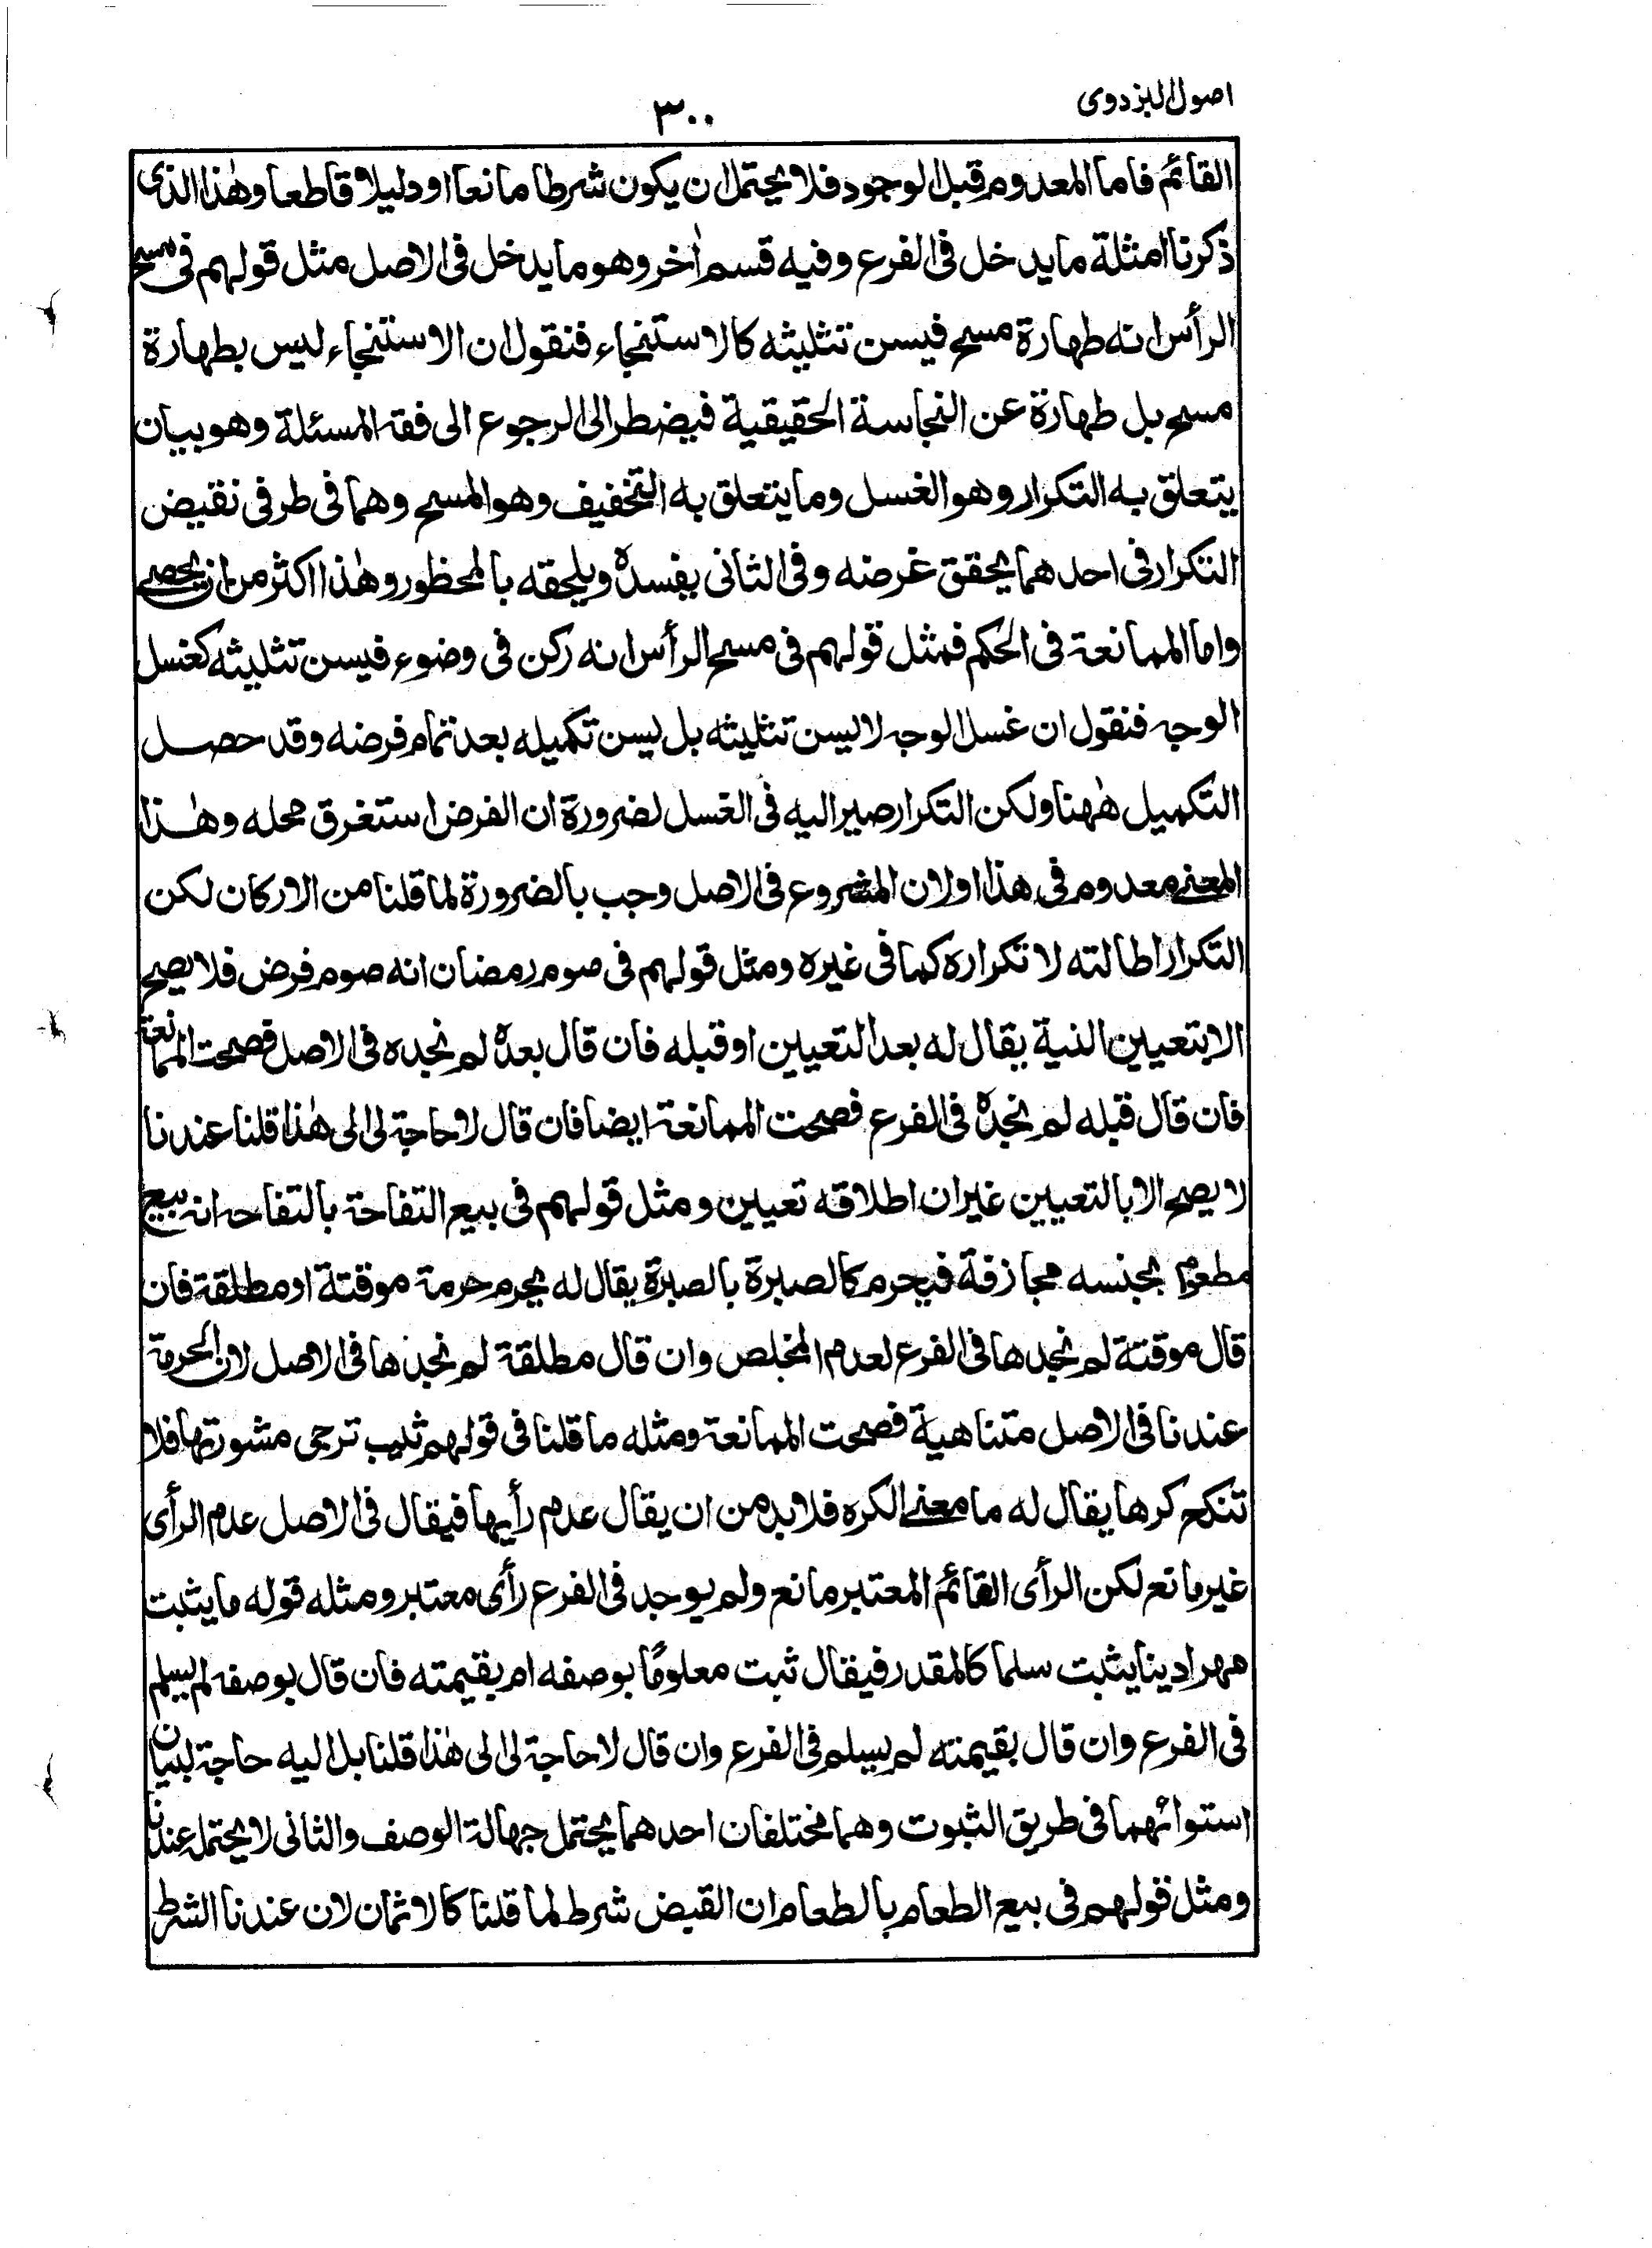 اصول البزدوی
۳۰۰
القائم فاما المعدوم قبل الوجود فلا يحتمل ان يكون شرطا مانعا او دليلا قاطعا وهٰذا الذى
ذكرنا امثلة ما يدخل فى الفرع وفيه قسم اٰخر وهو ما يدخل فى الاصل مثل قولهم فى مسح
الرأس انه طهارة مسح فيسن تثليثه كالاستنجاء فنقول ان الاستنجاء ليس بطهارة
مسح بل طهارة عن النجاسة الحقيقية فيضطر الى الرجوع الى فقه المسئلة وهو بيان
يتعلق به التكرار وهو الغسل وما يتعلق به التخفيف وهو المسح وهما فى طرفى نقيض
التكرار فى احدهما يحقق غرضه وفى الثانى يفسده ويلحقه بالمحظور وهٰذا اكثر من ان يحصى
واما الممانعة فى الحكم فمثل قولهم فى مسح الرأس انه ركن فى وضوء فيسن تثليثه كغسل
الوجه فنقول ان غسل الوجه لا يسن تثليثه بل يسن تكميله بعد تمام فرضه وقد حصل
التكميل هٰهنا ولكن التكرار صير اليه فى الغسل لضرورة ان الفرض استغرق محله وهٰذا
المعنى معدوم فى هذا او لان المشروع فى الاصل وجب بالضرورة لما قلنا من الاركان لكن
التكرار اطالته لا تكراره كما فى غيره ومثل قولهم فى صوم رمضان انه صوم فرض فلا يصح
الا بتعيين النية يقال له بعد التعيين او قبله فان قال بعده لم نجده فى الاصل فصحت الممانعة
فان قال قبله لم نجده فى الفرع فصحت الممانعة ايضا فان قال لا حاجة لى الى هٰذا قلنا عندنا
لا يصح الا بالتعيين غير ان اطلاقه تعيين ومثل قولهم فى بيع التفاحة بالتفاحة انه بيع
مطعوم بجنسه مجازفة فيحرم كالصبرة بالصبرة يقال له يحرم حرمة موقتة او مطلقة فان
قال موقتة لم نجدها فى الفرع لعدم المخلص وان قال مطلقة لم نجدها فى الاصل لان الحرمة
عندنا فى الاصل متناهية فصحت الممانعة ومثله ما قلنا فى قولهم ثيب ترجى مشورتها فلا
تنكح كرها يقال له ما معنى الكره فلا بد من ان يقال عدم رأيها فيقال فى الاصل عدم الرأى
غير مانع لكن الرأى القائم المعتبر مانع ولم يوجد فى الفرع رأى معتبر ومثله قوله ما يثبت
مهرا دينا يثبت سلما كالمقدر فيقال ثبت معلومًا بوصفه ام بقيمته فان قال بوصفه لم يسلم
فى الفرع وان قال بقيمته لم يسلم فى الفرع وان قال لا حاجة لى الى هٰذا قلنا بل اليه حاجة لبيان
استوائهما فى طريق الثبوت وهما مختلفان احدهما يحتمل جهالة الوصف والثانى لا يحتمل عندنا
ومثل قولهم فى بيع الطعام بالطعام ان القبض شرط لما قلنا كالاثمان لان عندنا الشرط